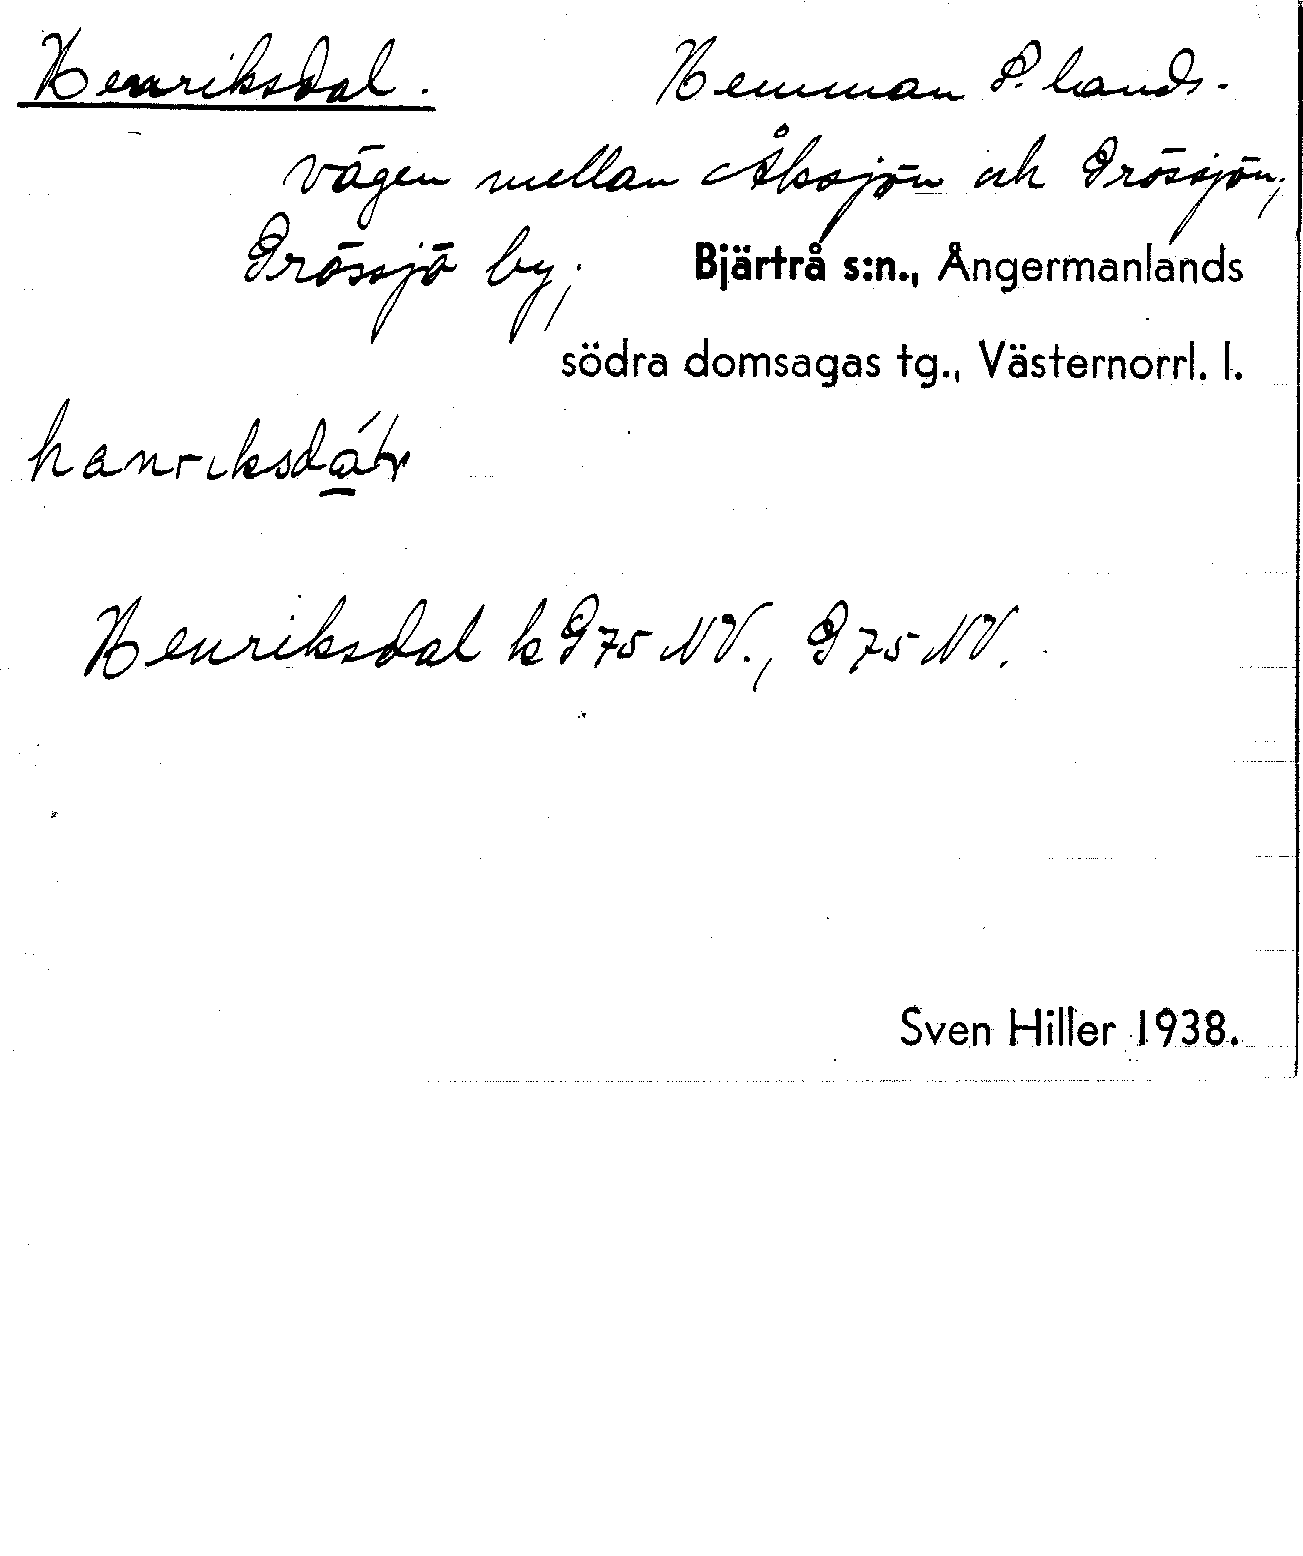 Henriksdal. Hemman S. lands-
vägen mellan Åksjön och Grössjön;
Grössjö by; Bjärtrå s:n., Ångermanlands
södra domsagas tg., Västernorrl. l.
Henriksdal k G75 NV., G 75 NV.
Sven Hiller 1938.